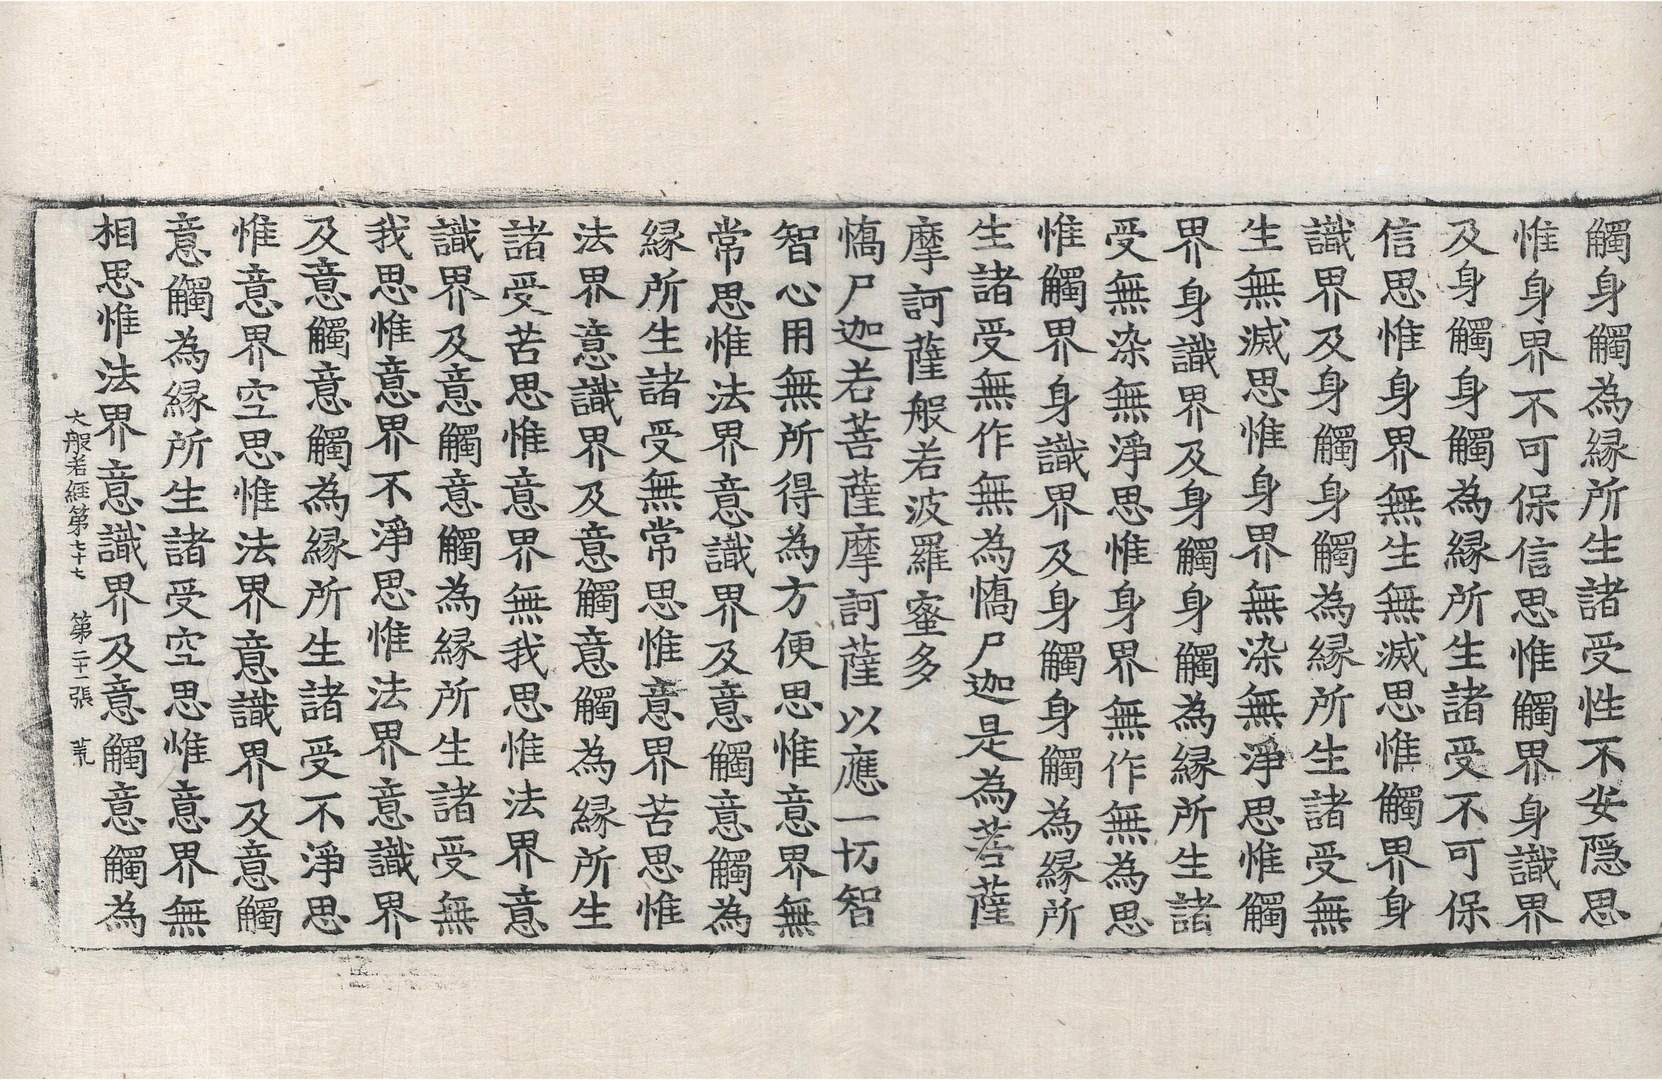 觸身觸為縁所生諸受性不安隠思
惟身界不可保信思惟觸界身識界
及身觸身觸為縁所生諸受不可保
信思惟身界無生無滅思惟觸界身
識界及身觸身觸為縁所生諸受無
生無滅思惟身界無染無淨思惟觸
界身識界及身觸身觸為縁所生諸
受無染無淨思惟身界無作無為思
惟觸界身識界及身觸身觸為縁所
生諸受無作無為憍尸迦是為菩薩
摩訶薩般若波羅蜜多
憍尸迦若菩薩摩訶薩以應一切智
智心用無所得為方便思惟意界無
常思惟法界意識界及意觸意觸為
縁所生諸受無常思惟意界苦思惟
法界意識界及意觸意觸為縁所生
諸受苦思惟意界無我思惟法界意
識界及意觸意觸為縁所生諸受無
我思惟意界不淨思惟法界意識界
及意觸意觸為縁所生諸受不淨思
惟意界空思惟法界意識界及意觸
意觸為縁所生諸受空思惟意界無
相思惟法界意識界及意觸意觸為
大般若經第七十七 第二十一張 荒